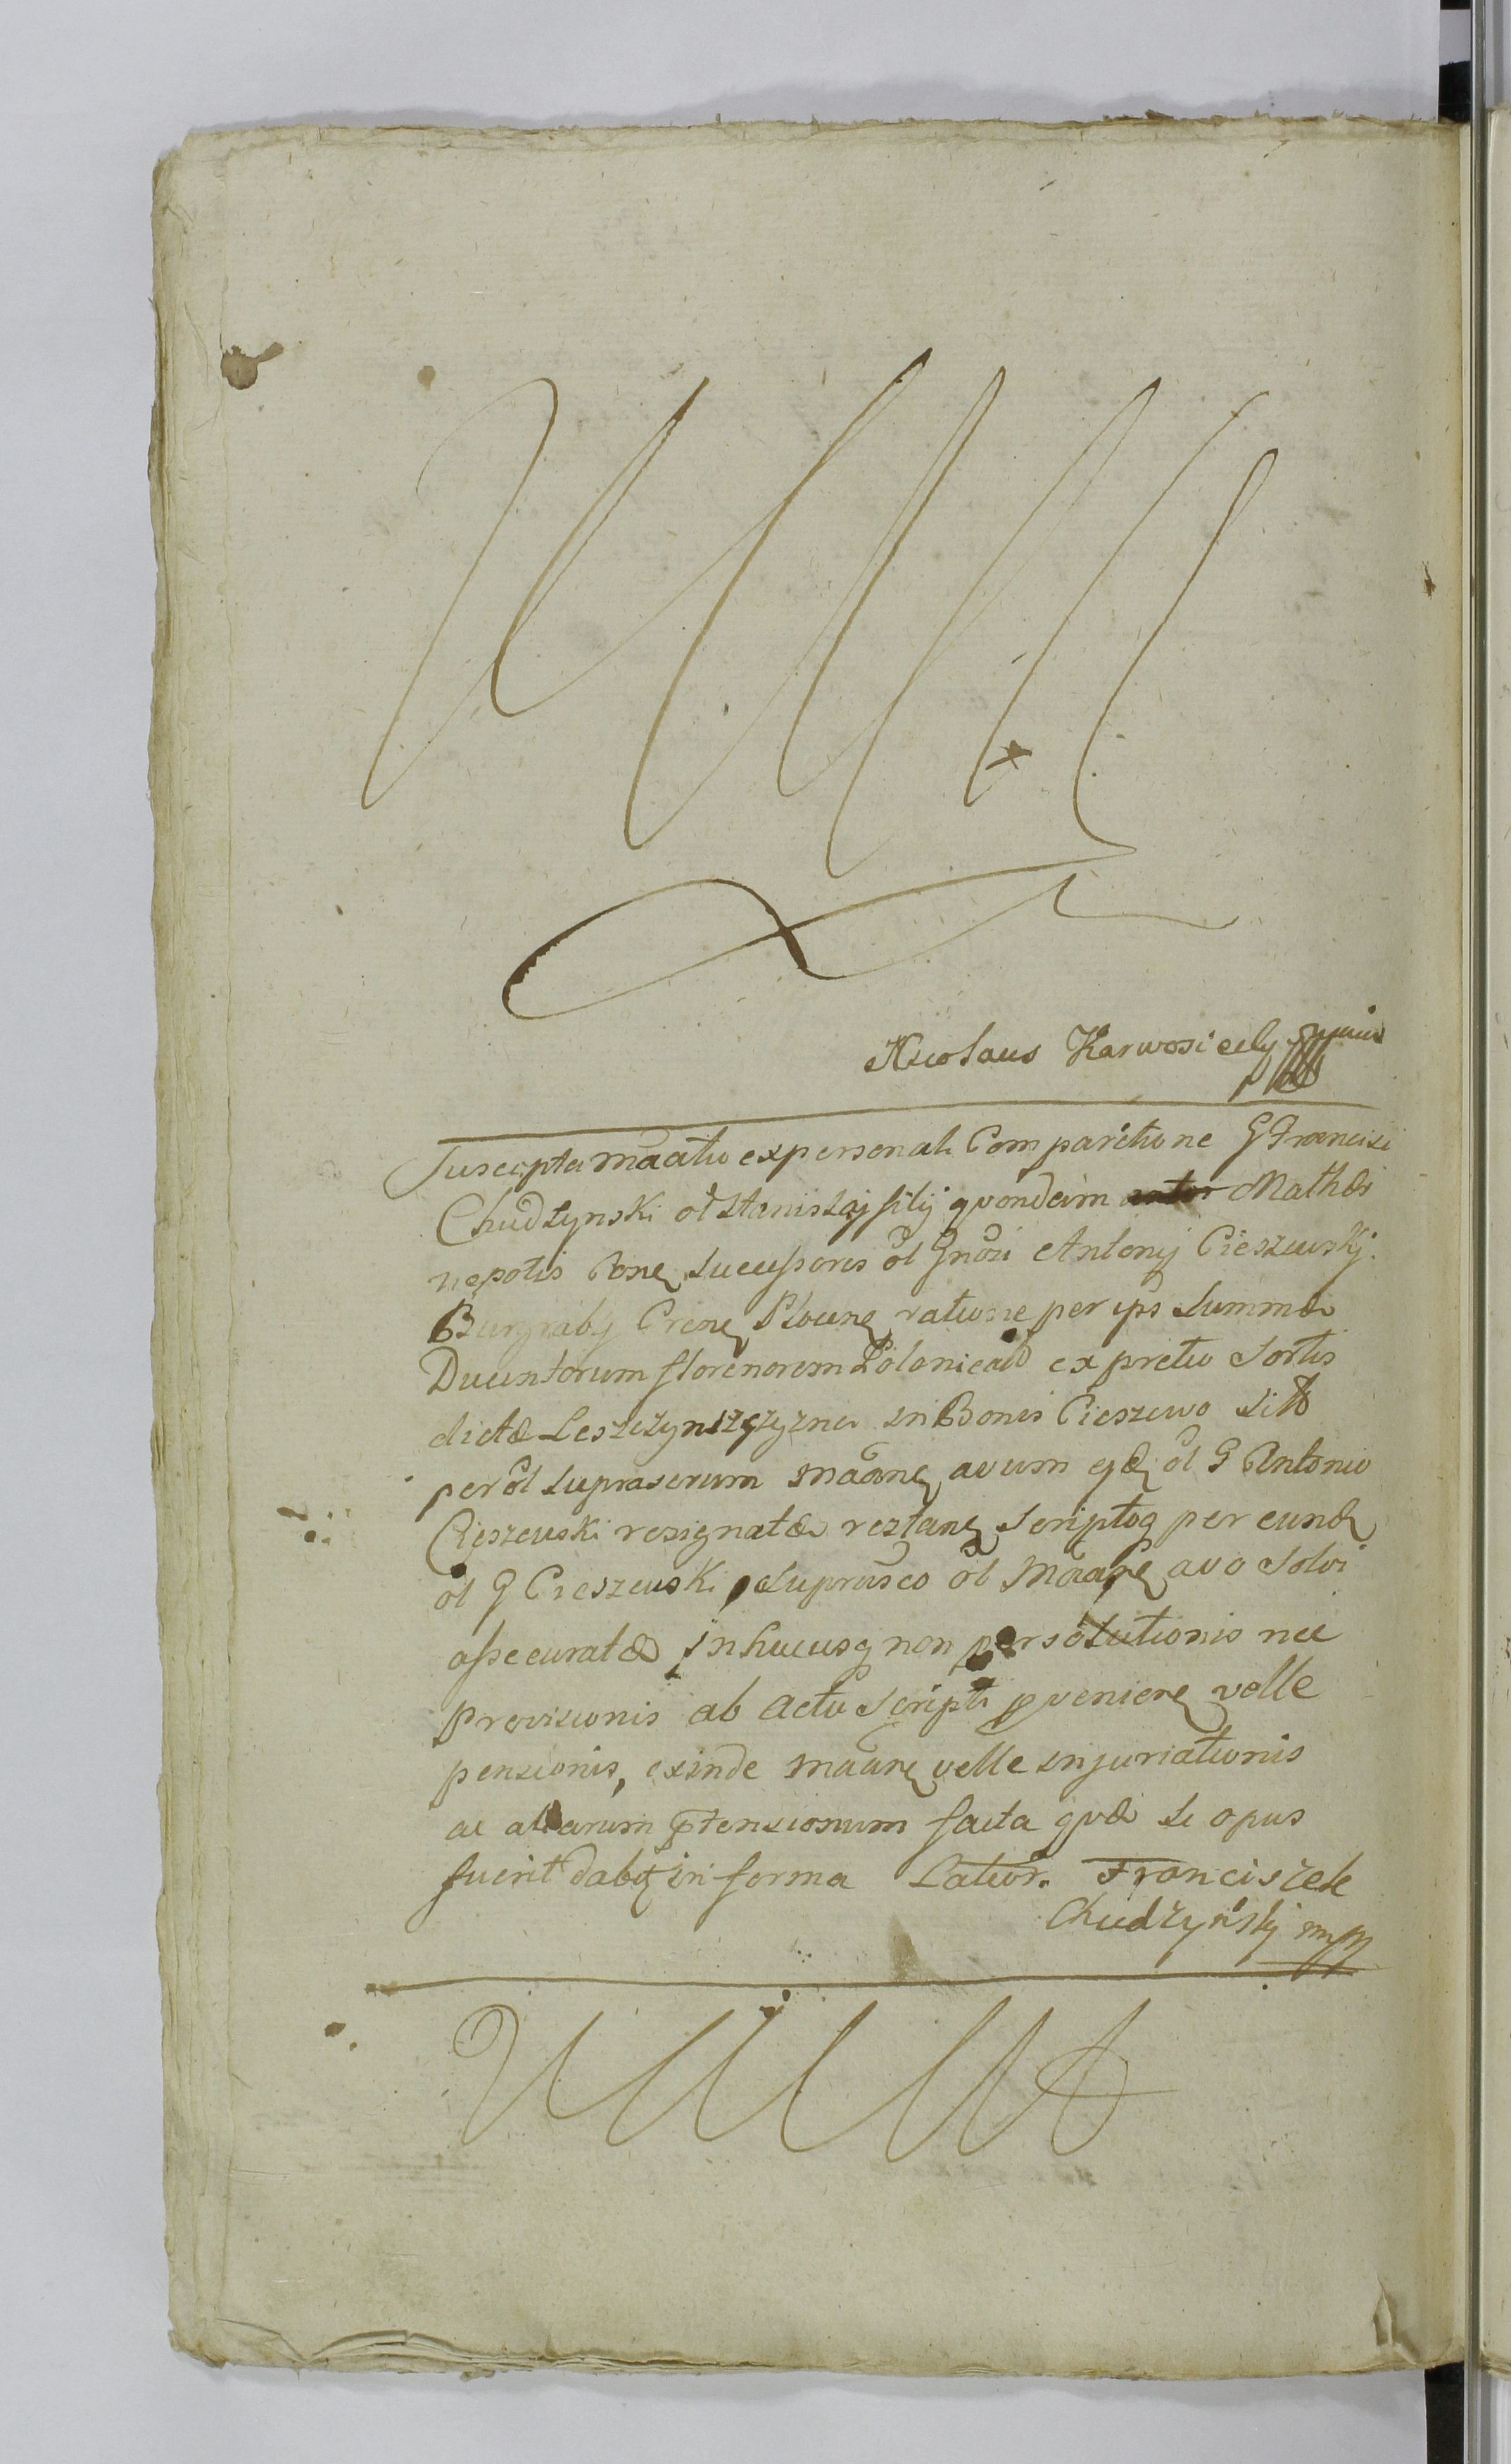 Nicolaus Karwosiecky
Suscepta maātio ex personali Comparitione G Francisci
Chudzynski ol Stanislaj filij qvondam Mathæi
nepotis bone sucessoris ol Gnosi Antonij Cieszewskj
Burgrabij Crene Plocene ratione per ips Summæ
Ducentorum florenorem Polonicaliū ex pretio Sortis
dictæ Leszczynszczyzna in Bonis Cieszewo Sitæ
per ol suprascrum maāne avum ejæ ol G Antonio
Cieszewski resignatæ restane Scriptoq per eund
ol G Cieszewski suprasco ol Maāne avo Solvi
assecuratæ in hucusq non persolutionis nec
provisionis ab actu Scripti pveniene velle
pensionis, exinde maāne velle injuriationis
ac aliarum ptensionum facta qvæ si opus
fuerit dabit in forma Latior. Franciszek
Chudzyńskj mpp